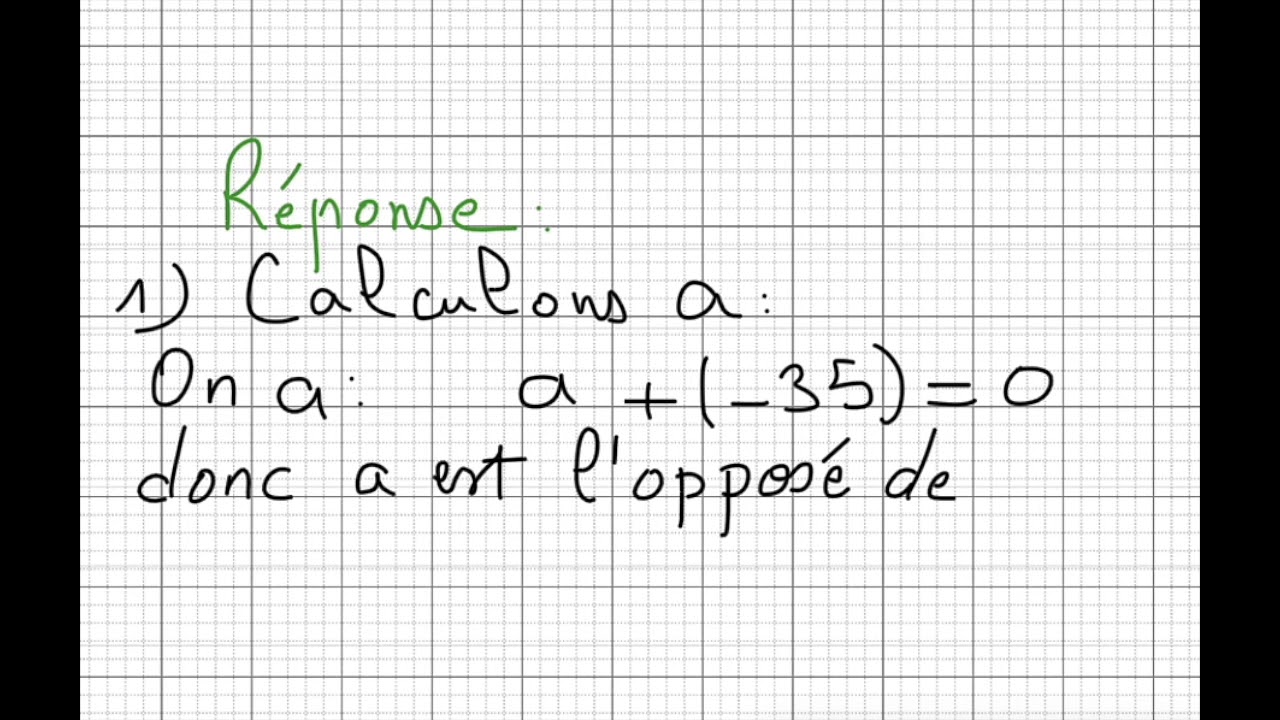 Réponse :
1) Calculons a :
On a : a + (-35) = 0
donc a est l'opposé de